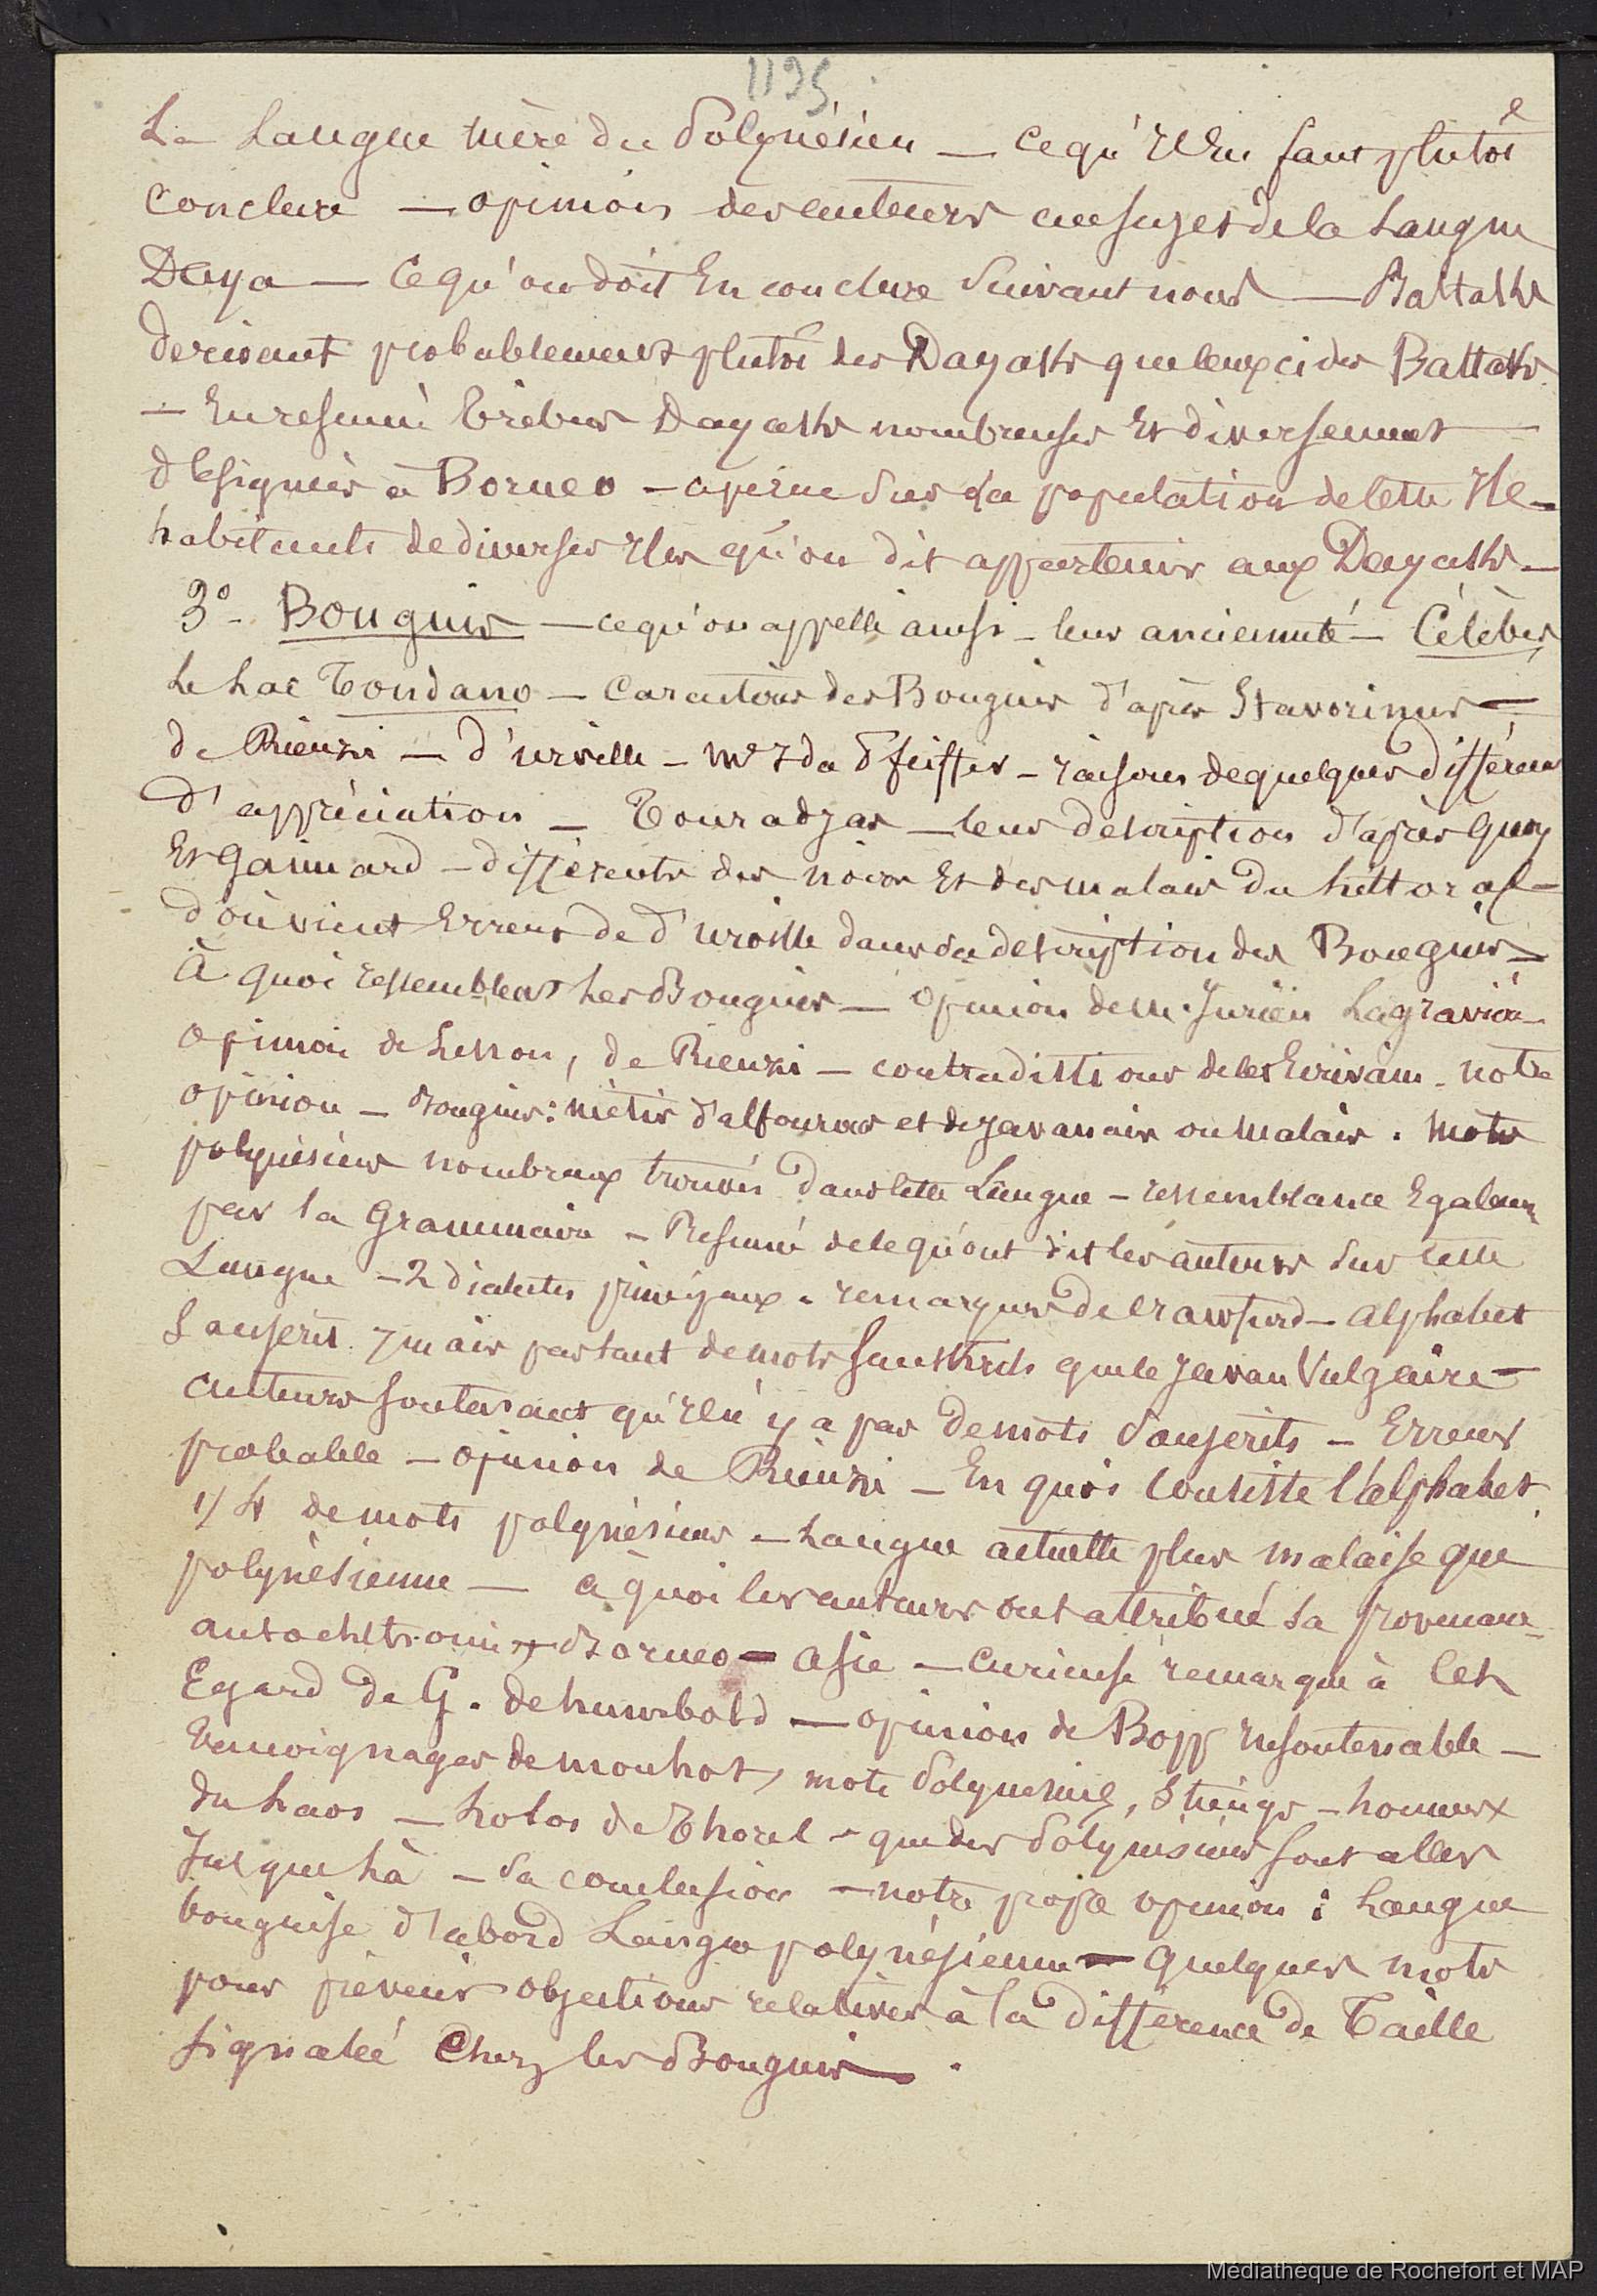 1195
La Langue mère du Polynésien — ce qu'il en faut plutôt
conclure — opinions des auteurs au sujet de la Langue
Daya — Ce qu'on doit En conclure Suivant nous — Battaks
derivant probablement plutôt des Dayaks que ceux ci des Battaks
— En resumé Tribus Dayaks nombreuses Et diversement
désignées à Borneo — aperçu sur la population de cette Ile —
habitants de diverses Iles qu'on dit appartenir aux Dayaks —
3° - Bouguis — ce qu'on appelle ainsi — leur ancienneté — Célèbes
Le Lac Tondano — Caractères des Bouguis d'après Stavorinus —
de Rienzi — d'urville — Me Ida Pfeiffer — raisons de quelques différences
d'appréciation — Touradjas — leur description d'après Quoy
Et Gaimard — différents des noirs Et des malais du Littoral —
d'où vient Erreur de d'urville dans sa description des Bouguis —
À quoi ressemblent Les Bouguis — Opinion de M. Jurien Lagravière
Opinion de Lesson, de Rienzi — contradictions de ces Ecrivains — notre
opinion — Bouguis : métis d'alfourous et de javanais ou Malais . Mots
polynésiens nombreux trouvés dans cette Langue — ressemblance Egalement
par la Grammaire — Resumé de ce qu'ont dit les auteurs sur cette
Langue — 2 dialectes principaux — remarques de Crawfurd — Alphabet
Sanscrit . mais pas tant de mots Sanskrits que le Javan Vulgaire —
auteurs soutenant qu'il n'y a pas de mots Sanscrits — Erreur
probable — opinion de Rienzi — En quoi Consiste l'alphabet
1/4 de mots polynésiens — Langue actuelle plus malaise que
polynésienne — à quoi les auteurs ont attribué sa provenance —
autochthonie, Borneo — Asie — Curieuse remarque à Cet
Egard de G. de humbold — opinion de Bopp insoutenable —
temoignages de mouhot, mots Polynesiens, Stiengs — hommes
du Laos — Lolos de Thorel — que des Polynésiens sont allés
Jusque Là — Sa conclusion — notre propre opinion : Langue
bouguise d'abord Langue polynésienne — Quelques mots
pour prévenir objections relatives à la différence de Taille
signalée Chez les Bouguis — .
Médiathèque de Rochefort et MAP